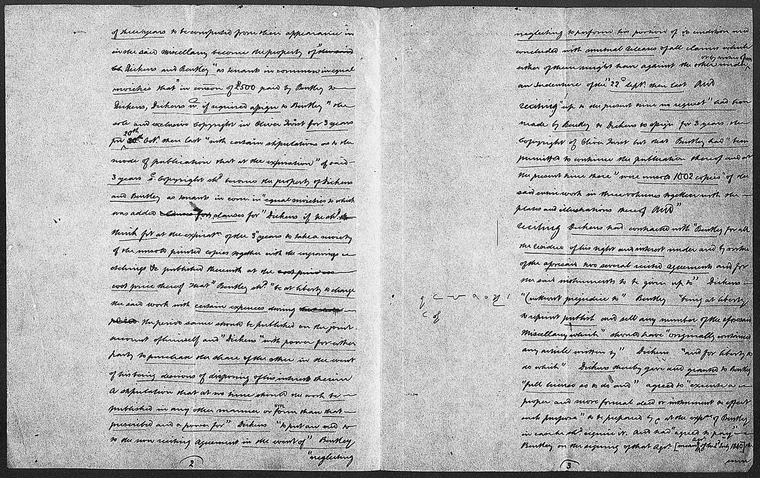 of three years to be computed from their appearance in
in the said Miscellany become the property of "the said
Dickens and Bentley "as tenants in common in equal
moieties that "in consn of £500 paid by Bentley to
Dickens, Dickens wd if required assign to Bentley" the
sole and exclusive Copyright in Oliver Twist for 3 years
from 20th Octr then last "with certain stipulations as to the
mode of publication that at the expiration" of said
3 years ye Copyright shd become the property of Dickens
and Bentley as tenants in com in "equal moieties to which
was added clauses for "Dickens if he shd
think fit at the expiratn of the 3 years to take a moiety
of the unsold printed copies together with the engravings
etchings &c published therewith at the
cost price thereof that" Bentley shd "be at liberty to charge
the said work with certain expences during
the period same should be published on the joint
account of himself and" Dickens "with power for either
party to purchase the share of the other in the event
of his being desirous of disposing of his interest therein
A stipulation that at no time should the work be
published in any other manner or form than that
prescribed and a power for" Dickens "to put an end to
to the now reciting agreement in the event of" Bentley
"neglecting
2
neglecting to perform his portion of ye condition and
concluded with mutual releases of all claims which
either of them might have against the other under
or by virtue of
an Indenture of the "22d Septr then last And
reciting "up to the present time no request" had been
made by Bentley to Dickens to assign for 3 years the
Copyright of Oliver Twist but that Bentley had "been
permitted to continue the publication thereof and at
the present time there "were unsold 1002 copies" of the
said work in three volumes together with the
plates and illustrations thereof And"
reciting Dickens had contracted with "Bentley for all
the residue of his right and interest under and by virtue
of the aforesaid two several recited agreements and for
the said instruments to be given up to" Dickens
"(without prejudice to" Bentley "being at liberty
to reprint publish and sell any number of the aforesaid
Miscellany which" should have "originally contained
any article written by" Dickens "and for liberty to
do which" Dickens thereby gave and granted to Bentley
"full license as to do and" agreed to "execute a
proper and more formal deed or instrument to effect
such purpose" to be prepared by & at the expse of Bentley
in case he shd require it. And had "agreed to pay"
Bentley on the signing of that Agt [meaning Agt of the 2d July 1840]
3